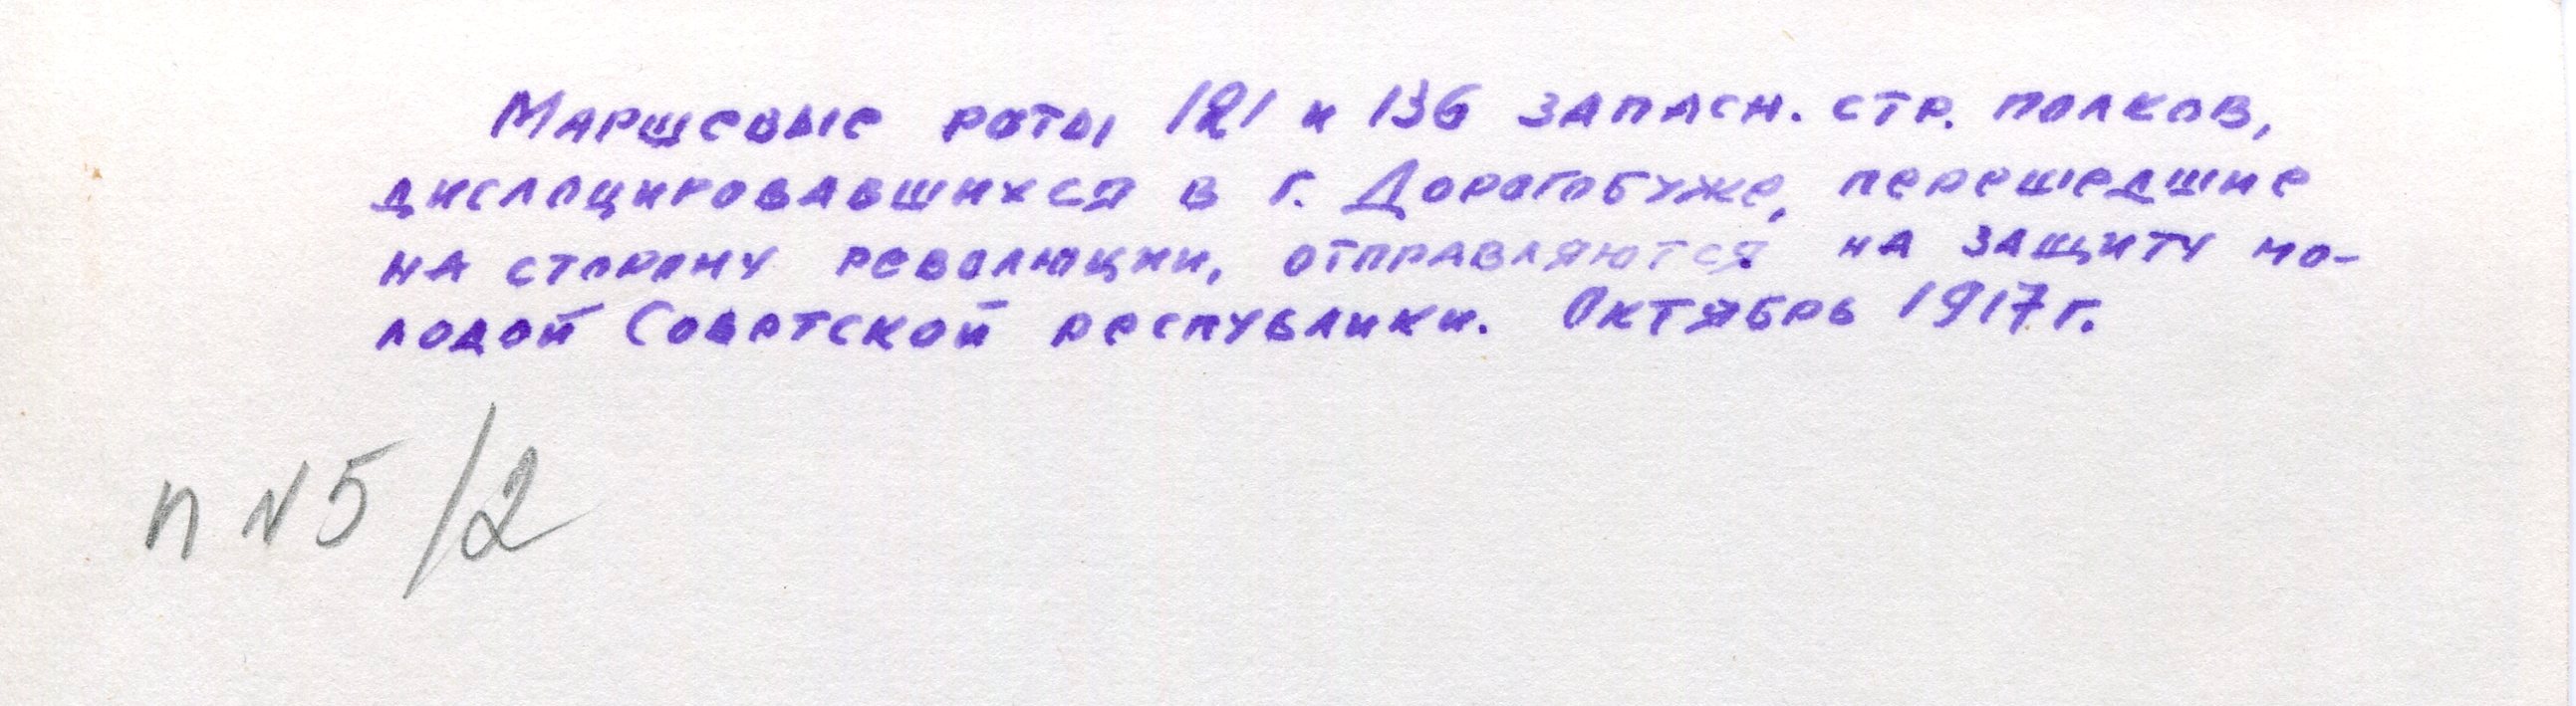 Маршевые роты 121 и 136 запасн. стр. полков,
дислоцировавшихся в г. Дорогобуже, перешедшие
на сторону революции, отправляются на защиту мо-
лодой Советской республики. Октябрь 1917 г.
п N 5/2